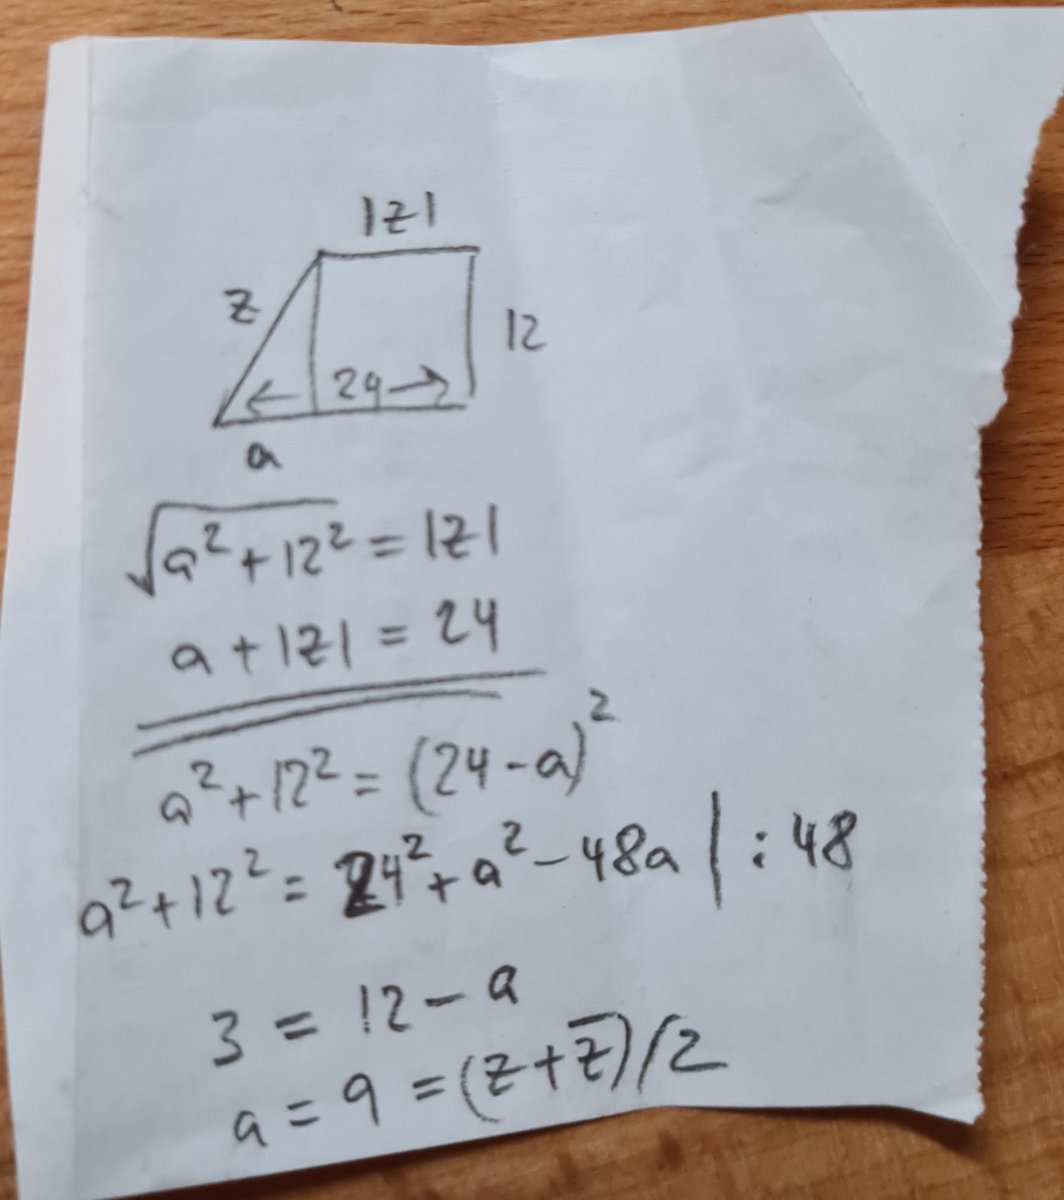 |z|
z
12
← 24 →
a
√(a² + 12²) = |z|
a + |z| = 24
a² + 12² = (24 - a)²
a² + 12² = 24² + a² - 48a | : 48
3 = 12 - a
a = 9 = (z + z̅)/2